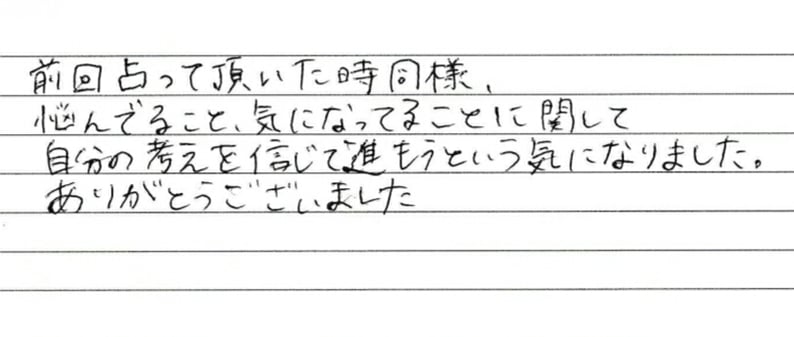 前回占って頂いた時同様、
悩んでること、気になってることに関して
自分の考えを信じて進もうという気になりました。
ありがとうございました